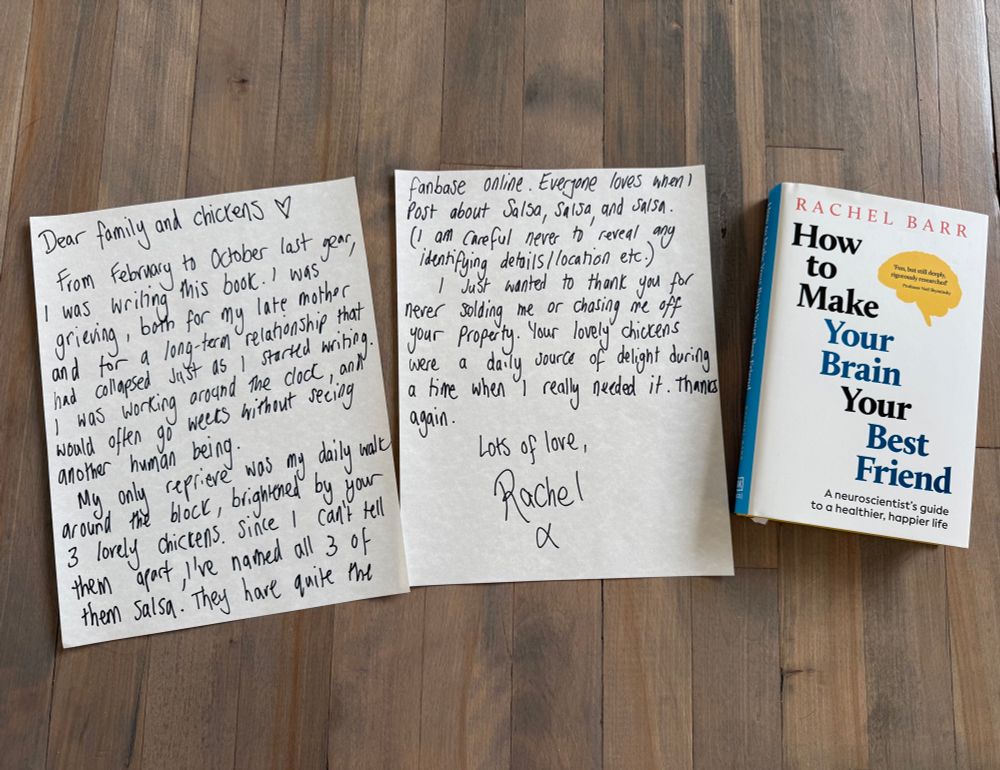 Dear family and chickens ♡
From February to October last year,
I was writing this book. I was
grieving, both for my late mother
and for a long-term relationship that
had collapsed just as I started writing.
I was working around the clock, and
would often go weeks without seeing
another human being.
My only reprieve was my daily walk
around the block, brightened by your
3 lovely chickens. Since I can't tell
them apart, I've named all 3 of
them Salsa. They have quite the
fanbase online. Everyone loves when I
Post about Salsa, Salsa, and Salsa.
(I am careful never to reveal any
identifying details/location etc.)
I Just wanted to thank you for
never solding me or chasing me off
your Property. Your lovely chickens
were a daily source of delight during
a time when I really needed it. Thanks
again.
Lots of love,
Rachel
x
RACHEL BARR
How
to
Make
Your
Brain
Your
Best
Friend
'Fun, but still deeply,
rigorously researched'
A neuroscientist's guide
to a healthier, happier life